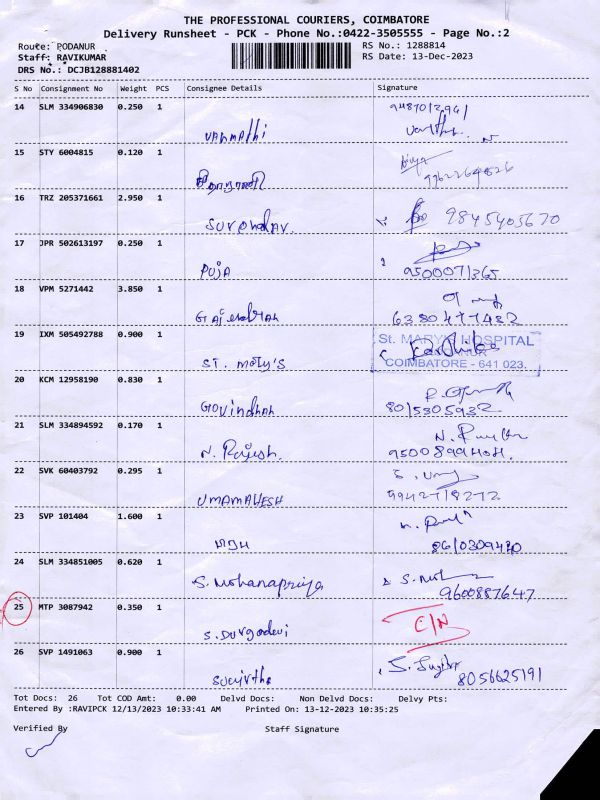 THE PROFESSIONAL COURIERS, COIMBATORE
Delivery Runsheet - PCK - Phone No.:0422-3505555 - Page No.:2
Route: PODANUR RS No.: 1288814
Staff: RAVIKUMAR RS Date: 13-Dec-2023
DRS No.: DCJB128881402
S No Consignment No Weight PCS Consignee Details Signature
14 SLM 334906830 0.250 1
15 STY 6004815 0.120 1
16 TRZ 205371661 2.950 1
9845405670
17 JPR 502613197 0.250 1
Puja 9500071365
18 VPM 5271442 3.850 1
6380477432
19 IXM 505492788 0.900 1
St. MARY'S HOSPITAL
ST. Mary's
COIMBATORE - 641 023.
20 KCM 12958190 0.830 1
Govindhan 8015305932
21 SLM 334894592 0.170 1
N. Rajesh.
22 SVK 60403792 0.295 1
UMAMAHESH 9942718272
23 SVP 101404 1.600 1
8610309430
24 SLM 334851005 0.620 1
S. Mohanapriya 9600887647
25 MTP 3087942 0.350 1
S. Durgadevi
26 SVP 1491063 0.900 1
8056625191
Tot Docs: 26 Tot COD Amt: 0.00 Delvd Docs: Non Delvd Docs: Delvy Pts:
Entered By :RAVIPCK 12/13/2023 10:33:41 AM Printed On: 13-12-2023 10:35:25
Verified By Staff Signature